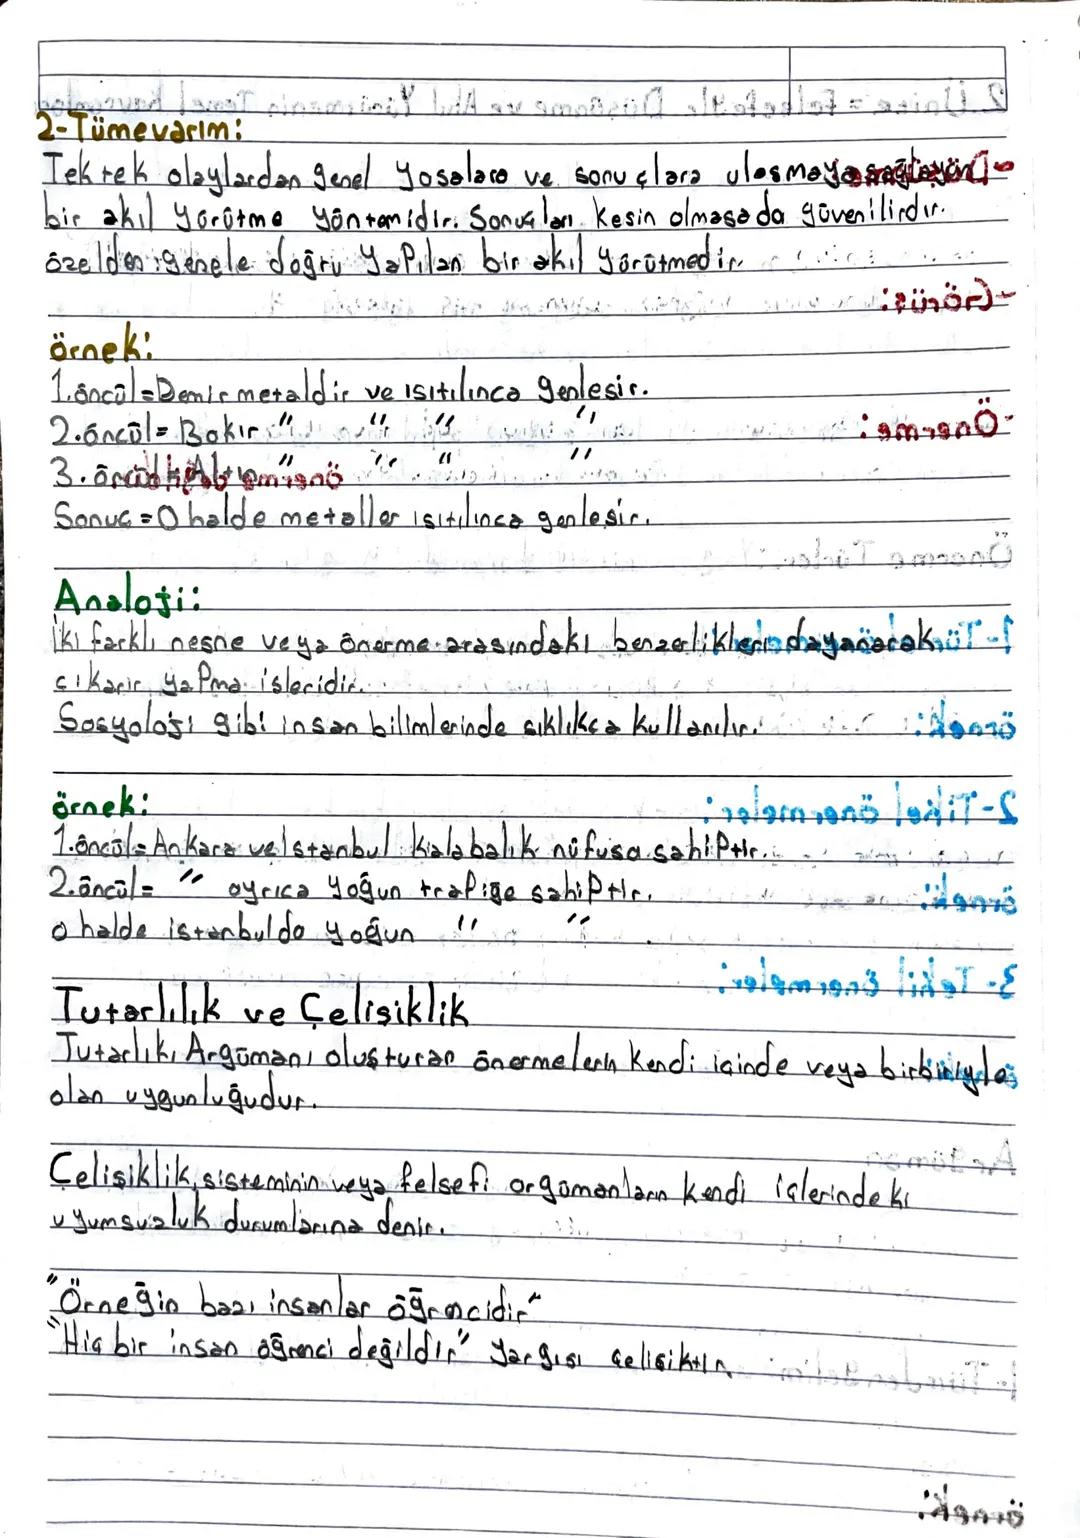 2-Tümevarım:
Tek tek olaylardan genel yasalara ve sonuçlara ulaşmaya sağlayan
bir akıl yürütme yöntemidir. Sonuçları kesin olmasada güvenilirdir.
özelden genele doğru yapılan bir akıl yürütmedir.
örnek:
1.öncül=Demir metaldir ve ısıtılınca genleşir.
2.öncül= Bakır " " " "
3.öncül= Altın " " " "
Sonuç = O halde metaller ısıtılınca genleşir.
Analoji:
İki farklı nesne veya önerme arasındaki benzerlikleri dayanarak
çıkarır yapma işleridir.
Sosyoloji gibi insan bilimlerinde sıklıkca kullanılır.
örnek:
1.öncül= Ankara ve İstanbul kalabalık nüfusa sahiptir.
2.öncül= " ayrıca yoğun trafiğe sahiptir.
o halde istanbulda yoğun " " .
Tutarlılık ve Çelişiklik
Tutarlık, Argümanı oluşturan önermelerin kendi içinde veya birbiriyle
olan uygunluğudur.
Çelişiklik, sisteminin veya felsefi argümanların kendi içlerindeki
uyumsuzluk durumlarına denir.
"Örneğin bazı insanlar öğrencidir"
"Hiç bir insan öğrenci değildir" yargısı çelişiktir